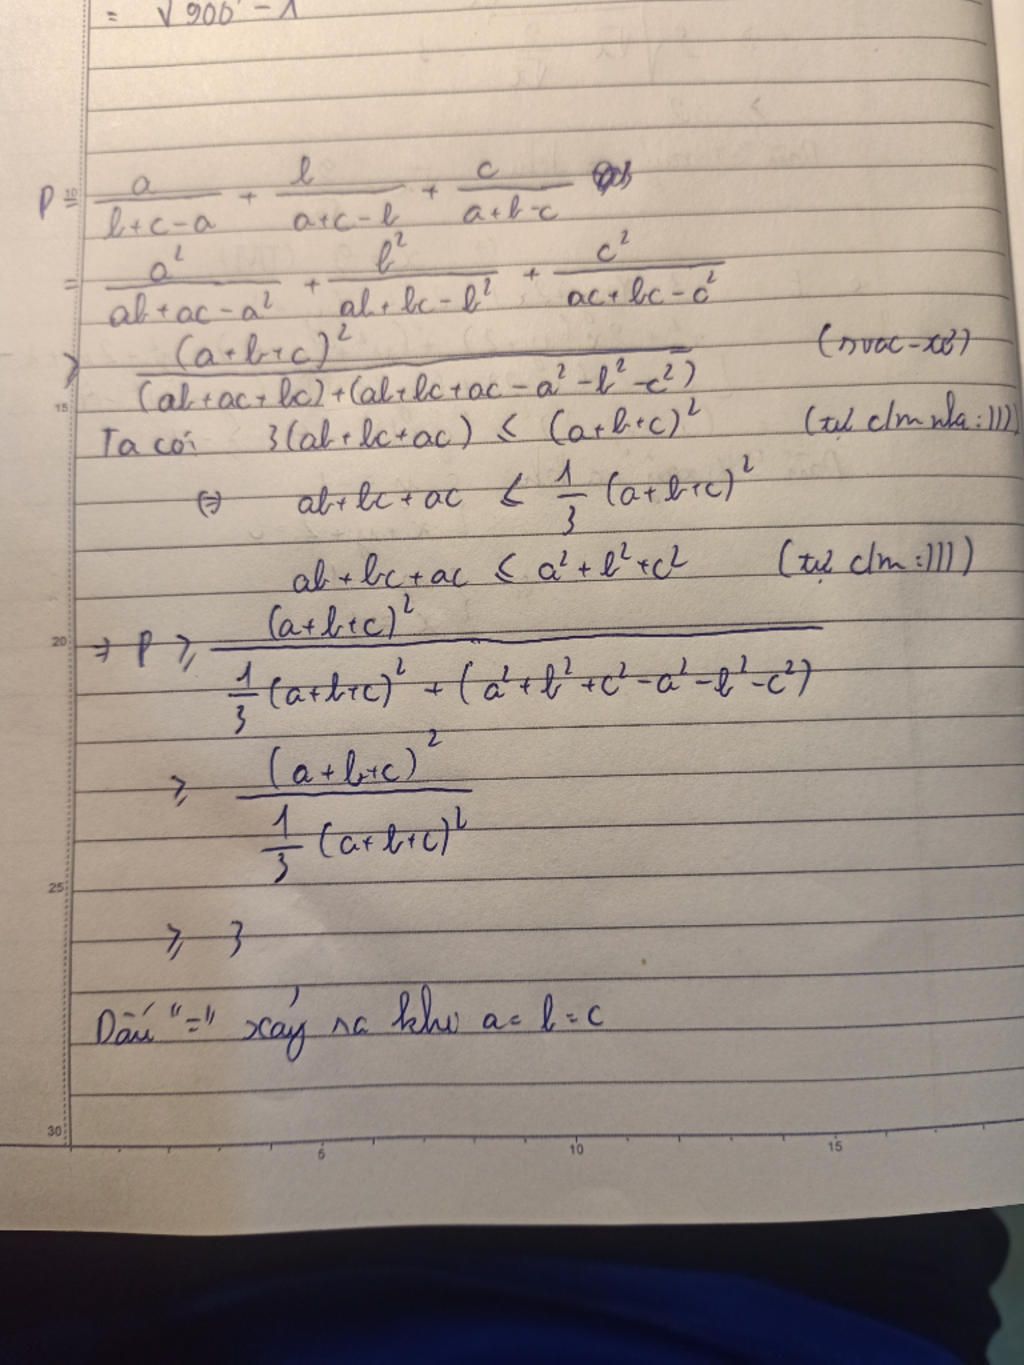 = √900 - 1
P = a/(b+c-a) + b/(a+c-b) + c/(a+b-c)
= a²/(ab+ac-a²) + b²/(ab+bc-b²) + c²/(ac+bc-c²)
≥ (a+b+c)²/((ab+ac+bc)+(ab+bc+ac-a²-b²-c²)) (svac-xơ)
15
Ta có: 3(ab+bc+ac) ≤ (a+b+c)² (tự c/m nha:)))
(=) ab+bc+ac ≤ 1/3 (a+b+c)²
ab+bc+ac ≤ a²+b²+c² (tự c/m:)))
20 => P ≥ (a+b+c)²/(1/3 (a+b+c)² + (a²+b²+c²-a²-b²-c²))
≥ (a+b+c)²/(1/3 (a+b+c)²)
25
≥ 3
Dấu "=" xảy ra khi a=b=c
30
5 10 15